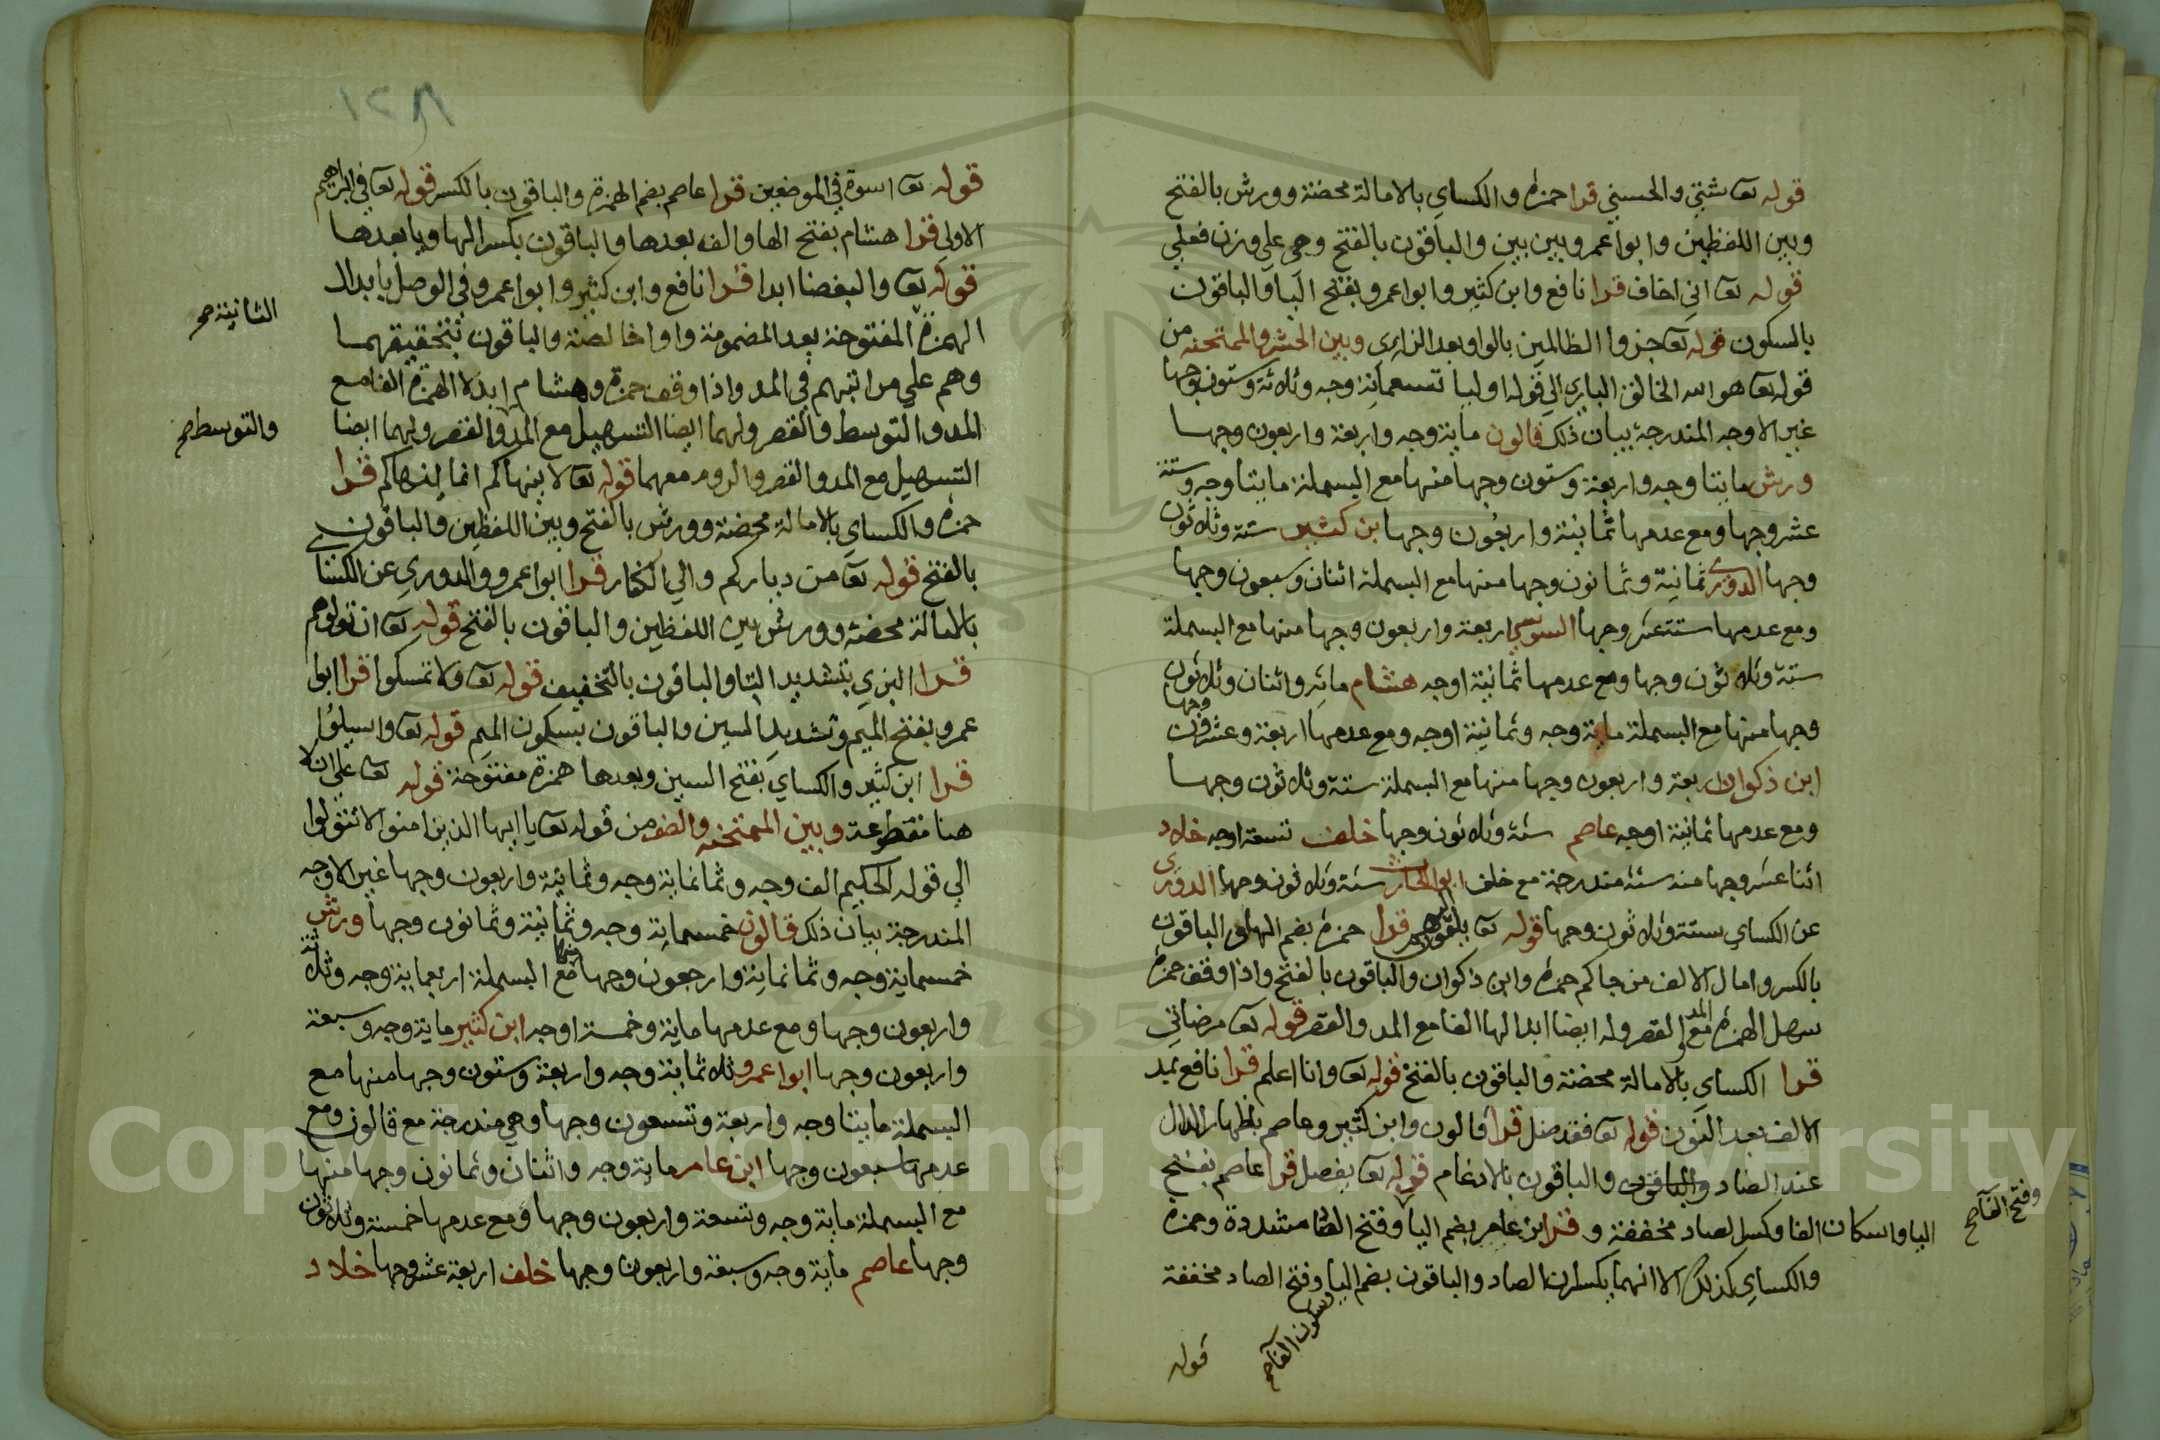 قوله تعا شتي والحسني قرا حمزة والكساي بالامالة محضة وورش بالفتح
وبين اللفظين وابوا عمرو بين بين والباقون بالفتح وهي علي وزن فعلي
قوله تعا اني اخاف قرا نافع وابن كثير وابوا عمرو بفتح اليا والباقون
بالسكون قوله تعا جزوا الظالمين بالواو بعد الزاي وبين الحشر والممتحنه من
قوله تعا هو الله الخالق الباري الي قوله اوليا تسعماية وجه وثلاثة وستون وجها
غير الاوجه المندرجة بيان ذلك قالون ماية وجه واربعة واربعون وجها
ورش مايتا وجه واربعة وستون وجها منها مع البسملة مايتا وجه وستة
عشر وجها ومع عدمها ثمانية واربعون وجها بن كثير ستة وثلاثون
وجها الدوري ثمانية وثمانون وجها منها مع البسملة اثنان وسبعون وجها
ومع عدمها ستة عشر وجها السوسي اربعة واربعون وجها منها مع البسملة
ستة وثلاثون وجها ومع عدمها ثمانية اوجه هشام مائة واثنان وثلاثون
وجها
وجها منها مع البسملة ماية وجه وثمانية اوجه ومع عدمها اربعة وعشرون
ابن ذكوان اربعة واربعون وجها منها مع البسملة ستة وثلاثون وجها
ومع عدمها ثمانية اوجه عاصم ستة وثلاثون وجها خلف تسعة اوجه خلاد
اثنا عشر وجها منه ستة مندرجة مع خلف ابو الحارث ستة وثلاثون وجها الدوري
عن الكساي ستة وثلاثون وجها قوله تعا يلقون اليهم قرا حمزة بضم الها والباقون
بالكسر وامال الالف من جاكم حمزة وابن ذكوان والباقون بالفتح واذا وقف حمزة
سهل الهمزة مع المد والقصر وله ايضا ابدالها الفا مع المد والقصر قوله تعا مرضاتي
قرا الكساي بالامالة محضة والباقون بالفتح قوله تعا وانا اعلم قرا نافع بمد
الالف بعد النون قوله تعا فقد ضل قرا قالون وابن كثير وعاصم باظهار الدال
عند الضاد والباقون والباقون بالادغام قوله تعا يفصل قرا عاصم بفتح
اليا واسكان الفا وكسر الصاد مخففة وقرا ابن عامر بضم اليا وفتح الفا مشددة وحمزة
وفتح الفا صح
والكساي كذلك الا انهما يكسران الصاد والباقون بضم اليا وفتح الصاد مخففة
وسكون الفا صح
قوله
١٢٨
قوله تعا اسوة في الموضعين قرا عاصم بضم الهمزة والباقون بالكسر قوله تعا في ابراهيم
الاولي قرا هشام بفتح الها والف بعدها والباقون بكسر الها ويا بعدها
قوله تعا والبغضا ابدا قرا نافع وابن كثير وابوا عمرو في الوصل بابدال
الثانية صح
الهمزة المفتوحة بعد المضمومة واوا خالصة والباقون بتحقيقهما
وهم علي مراتبهم في المد واذا وقف حمزة وهشام ابدلا الهمزة الفا مع
المد والتوسط والقصر ولهما ايضا التسهيل مع المد والقصر ولهما ايضا
والتوسط صح
التسهيل مع المد والقصر والروم معهما قوله تعا لا ينهاكم انما ينهاكم قرا
حمزة والكساي بالامالة محضة وورش بالفتح وبين اللفظين والباقون
بالفتح قوله تعا من دياركم والي الكفار قرا ابوا عمرو والدوري عن الكسا
بالامالة محضة وورش بين اللفظين والباقون بالفتح قوله تعا ان تولوهم
قرا البزي بتشديد التا والباقون بالتخفيف قوله تعا ولا تمسكوا قرا ابوا
عمرو بفتح الميم وتشديد السين والباقون بسكون الميم قوله تعا واسيلوا
قرا ابن كثير والكساي بفتح السين وبعدها همزة مفتوحة قوله تعا علي ان لا
هنا مقطوعة وبين الممتحنه والصف من قوله تعا يا ايها الذين امنوا لا تتولوا
الي قوله الحكيم الف وجه وثمانماية وجه وثمانية واربعون وجها غير الاوجه
المندرجة بيان ذلك قالون خمسماية وجه وثمانية وثمانون وجها ورش
خمسماية وجه وثمانماية واربعون وجها منها مع البسملة اربعماية وجه وثلاثة
واربعون وجها ومع عدمها ماية وخمسة اوجه ابن كثير ماية وجه وسبعة
واربعون وجها ابوا عمرو ثلاثماية وجه واربعة وستون وجها منها مع
البسملة مايتا وجه واربعة وتسعون وجها وهي مندرجة مع قالون ومع
عدمها سبعون وجها ابن عامر ماية وجه واثنان وثمانون وجها منها
مع البسملة ماية وجه وتسعة واربعون وجها ومع عدمها خمسة وثلاثون
وجها عاصم ماية وجه وسبعة واربعون وجها خلف اربعة عشر وجها خلاد
Copyright © King Saud University
1957